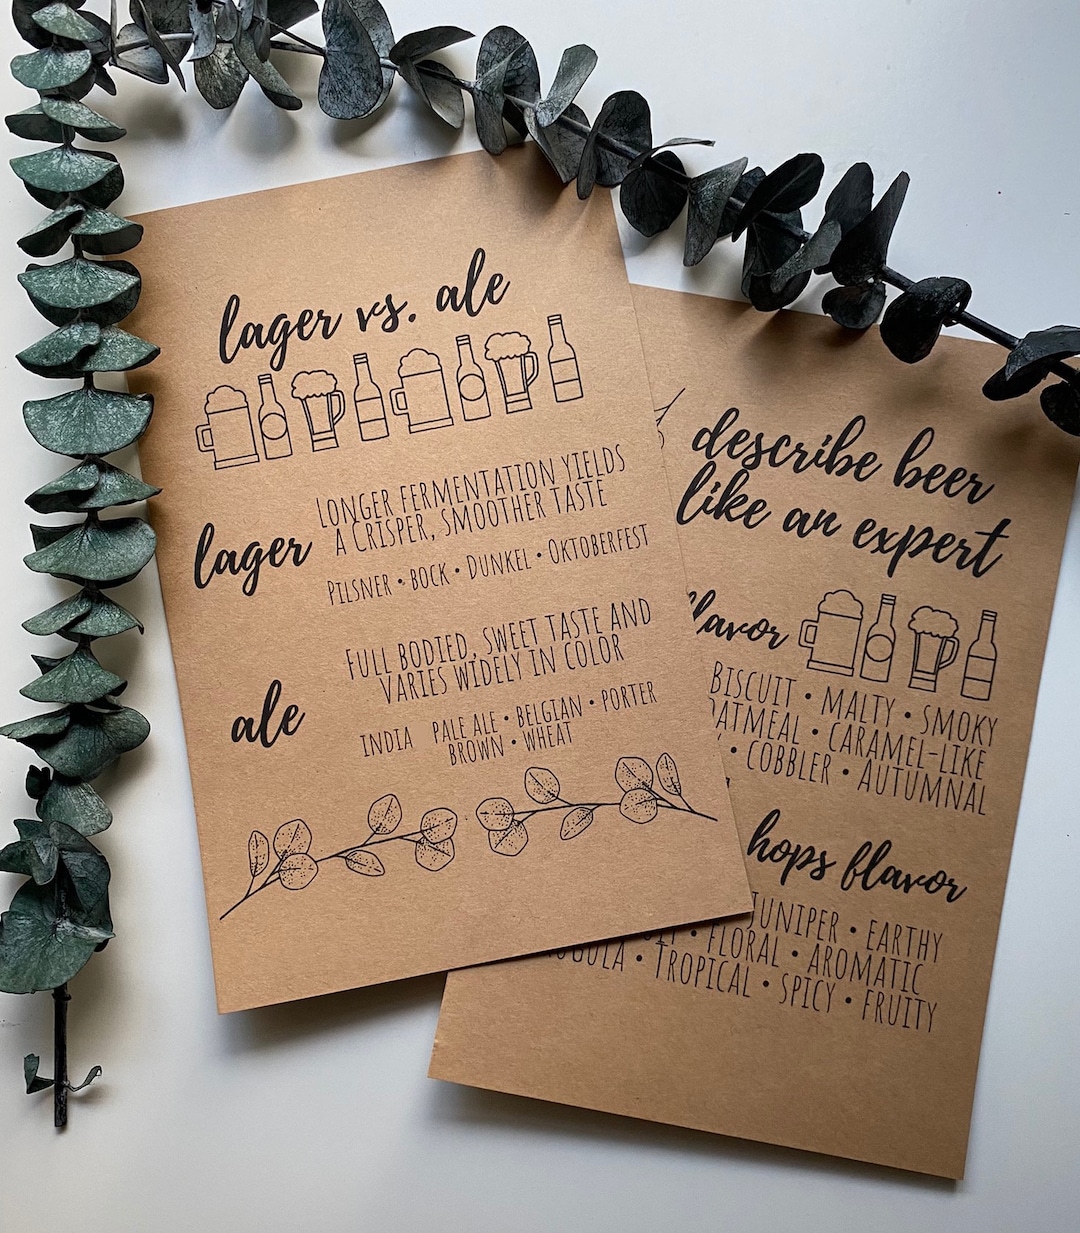 lager vs. ale
lager
Longer fermentation yields
a crisper, smoother taste
Pilsner • bock • Dunkel • Oktoberfest
ale
Full bodied, sweet taste and
varies widely in color
India Pale Ale • Belgian • Porter
Brown • Wheat
describe beer
like an expert
flavor
Biscuit • malty • smoky
oatmeal • caramel-like
• cobbler • Autumnal
hops flavor
Juniper • earthy
• floral • aromatic
• Tropical • spicy • fruity